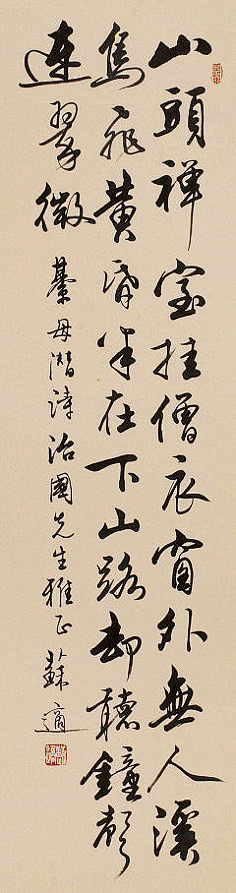 山頭禪室挂僧衣窗外無人溪
鳥飛黃昏半在下山路却聽鐘聲
連翠微
綦毋潛詩治國先生雅正蘇適